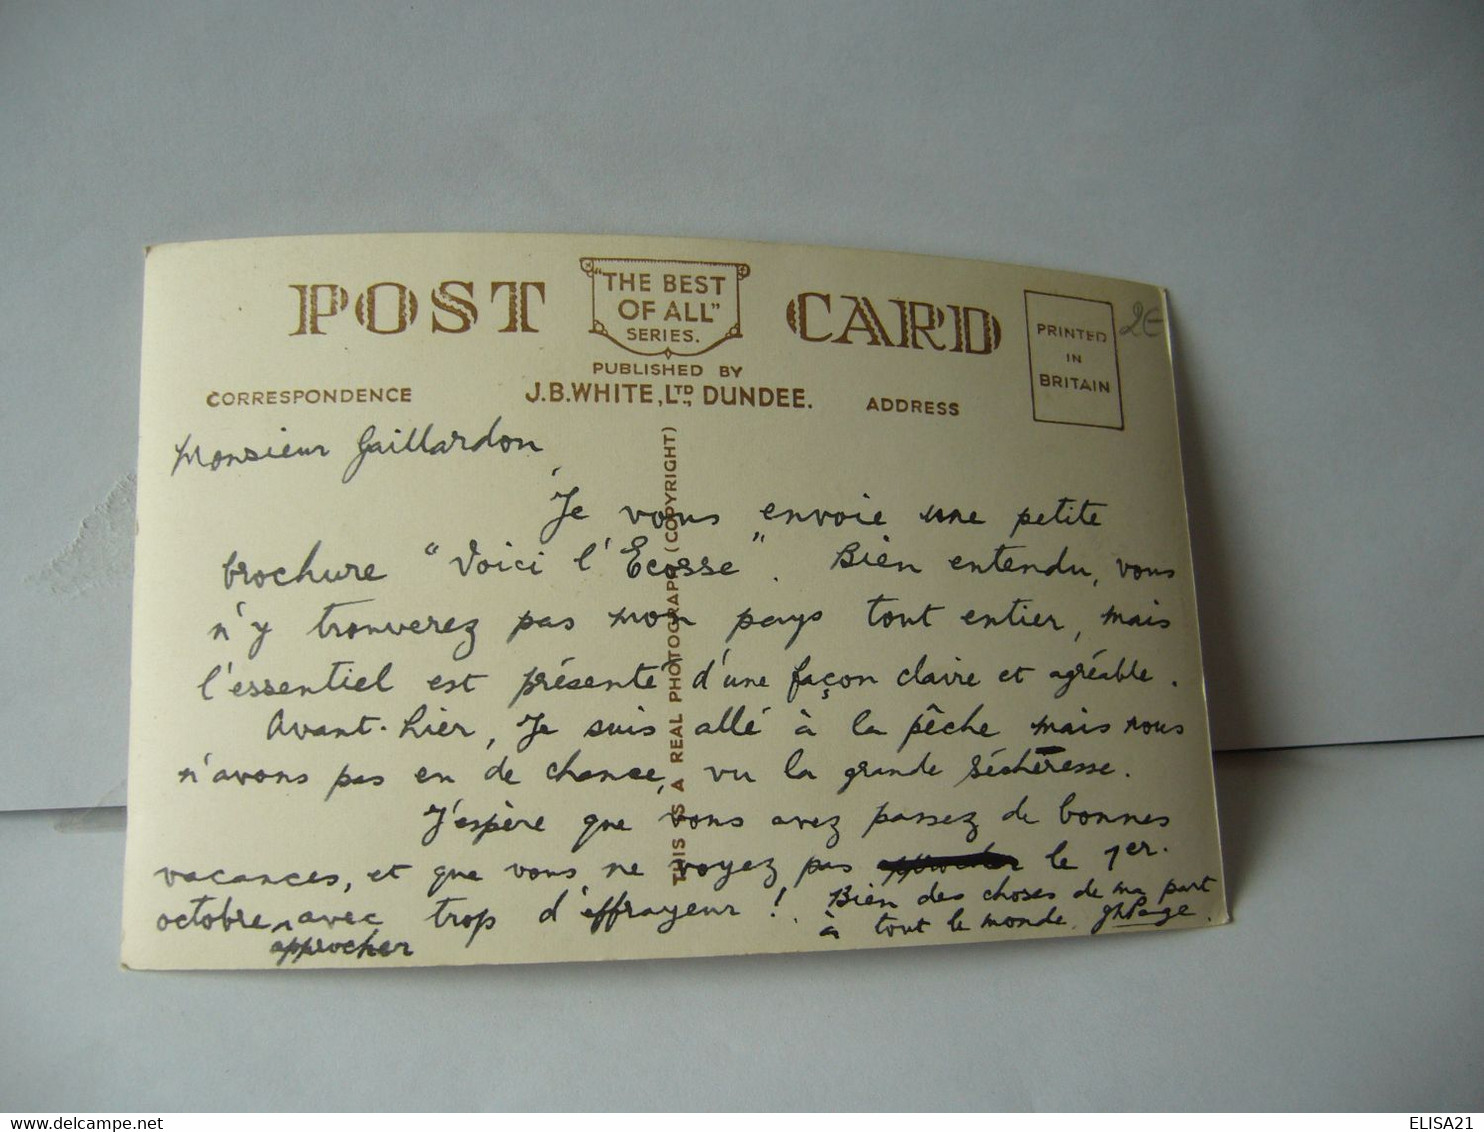 POST CARD
"THE BEST
OF ALL"
SERIES.
PUBLISHED BY
J.B.WHITE, LTD., DUNDEE.
CORRESPONDENCE
ADDRESS
PRINTED
IN
BRITAIN
2€
THIS IS A REAL PHOTOGRAPH (COPYRIGHT)
Monsieur Gaillardon,
Je vous envoie une petite
brochure "Voici l'Ecosse". Bien entendu, vous
n'y trouverez pas mon pays tout entier, mais
l'essentiel est présenté d'une façon claire et agréable.
Avant-hier, je suis allé à la pêche mais nous
n'avons pas eu de chance, vu la grande sécheresse.
J'espère que vous avez passez de bonnes
vacances, et que vous ne voyez pas le 1er.
octobre avec trop d'effrayeur !
approcher
Bien des choses de ma part
à tout le monde.
ELISA21